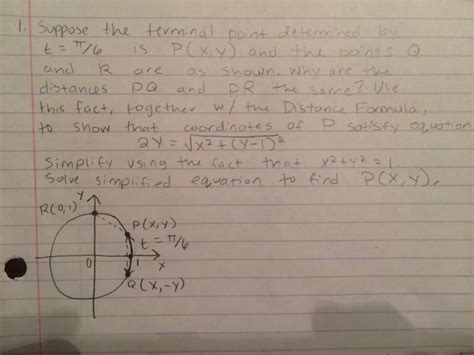 1. Suppose the terminal point determined by
t = π/6 is P(x,y) and the points Q
and R are as shown. Why are the
distances PQ and PR the same? Use
this fact, together w/ the Distance Formula,
to show that coordinates of P satisfy equation
2Y = √x²+(Y-1)²
Simplify using the fact that x²+y²=1.
Solve simplified equation to find P(X,Y).
Y
R(0,1)
P(x,y)
t = π/6
0
1
X
Q(X,-Y)